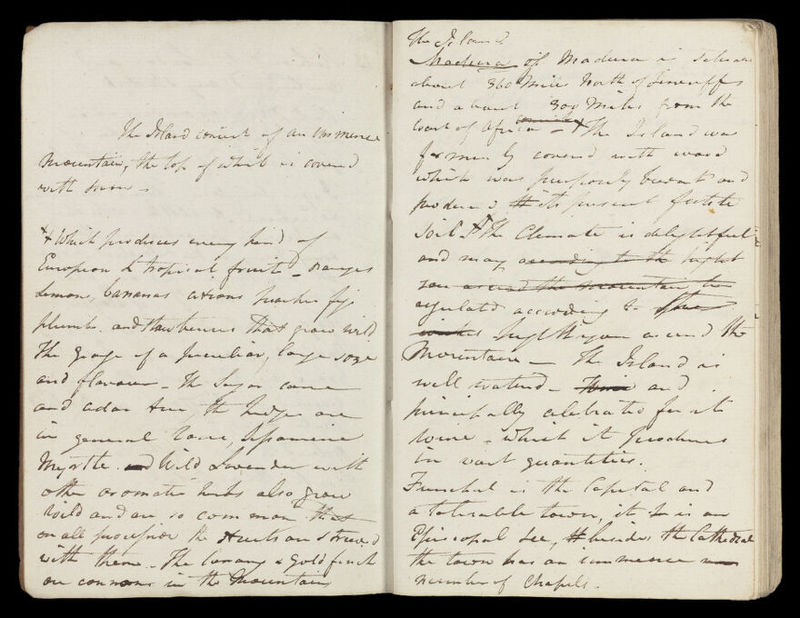 The Island consist of an immense
Mountain, the top of which is covered
with snow -
+ Which produces every kind of
European & tropical fruit - oranges
Lemons, bananas citrons peaches figs
plumbs. and strawberries that grow wild.
The grape of a peculiar, large size
and flavour - The Sugar cane
and cedar tree, the hedges are
in general Rose, Jepsamine
Myrtle. and Wild Lavender with
other aromatic herbs also grow
wild and are so common that
on all processions the streets are strewed
with them - The Canary & Goldfinch
are common in the Mountains
The Island
Madeira of Madeira is situate
about 360 Miles North of Teneriffe
and about 300 Miles from the
Coast of Africa - + The Island was
formerly covered with wood
which was purposely burnt and
produced its present fertile
Soil + The Climate is delightful
and may according to the hight
you ascend the mountain be
regulated according to the
hight you ascend the
Mountain - The Island is
well watered - and
principally celebrated for its
Wine - which it produces
in vast quantities.
Funchal is the Capital and
a tolerable town, it is an
Episcopal See, besides the Cathedral
the town has an immence
number of Chapels.